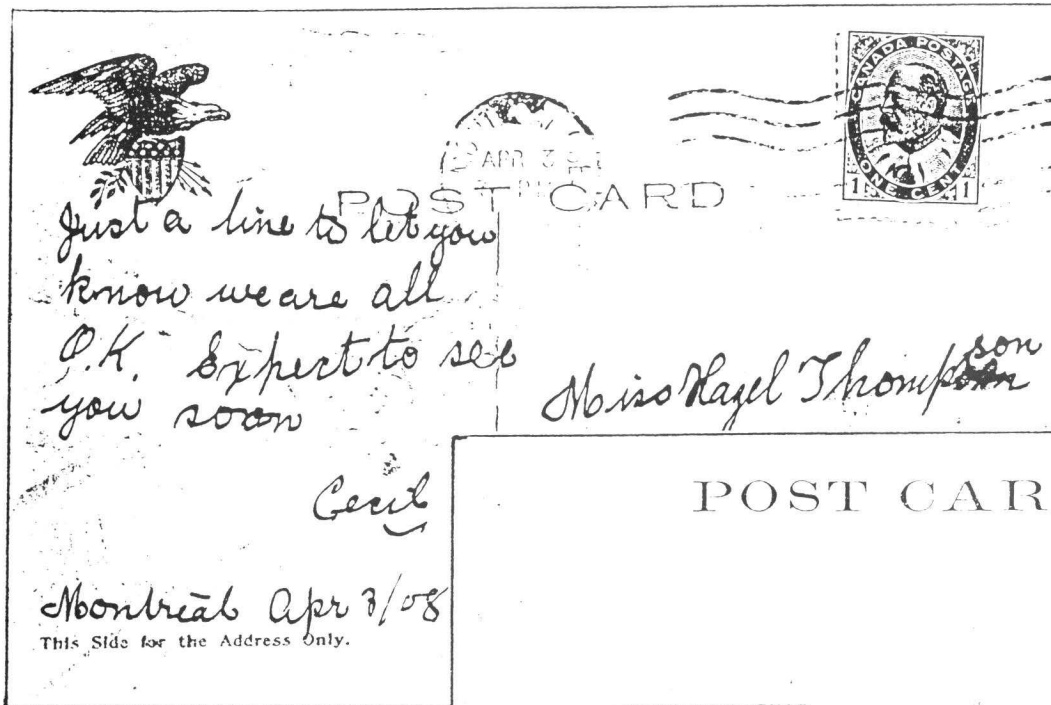 CANADA POSTAGE
ONE CENT
1 1
APR 3
POST CARD
Just a line to let you
know we are all
O.K. Expect to see
you soon
Cecil
Montreal Apr 3/08
This Side for the Address Only.
Miss Hazel Thompson
POST CAR